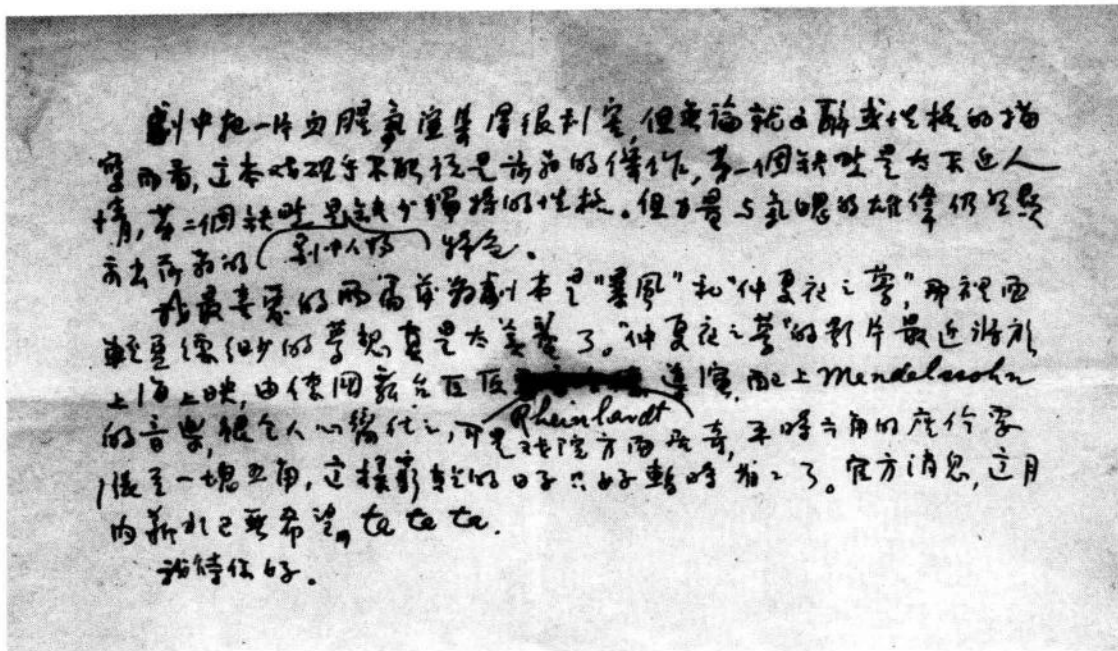 劇中把一片血腥氣渲染得很利害,但無論就文辭或性格的描
寫而言,这本戏確乎不能说是莎翁的傑作,第一個缺點是太不近人
情,第二個缺點是缺少獨特的性格。但力量与氣魄的雄偉仍然顯
示出莎翁的(劇中人物)特色。
我最喜爱的兩篇莎翁劇本是“暴風”和“仲夏夜之夢”,那裡面
輕盈縹緲的夢想真是太美麗了。“仲夏夜之夢”的影片最近將於
上海上映,由德國舞台巨匠Rheinhardt導演,配上Mendelssohn
的音樂,很令人心嚮往之,可是戏院方面居奇,平時六角的座价要
漲至一塊五角,这樣窮的日子只好暫時省二了。官方消息,这月
内薪水已無希望,te te te.
我待你好。